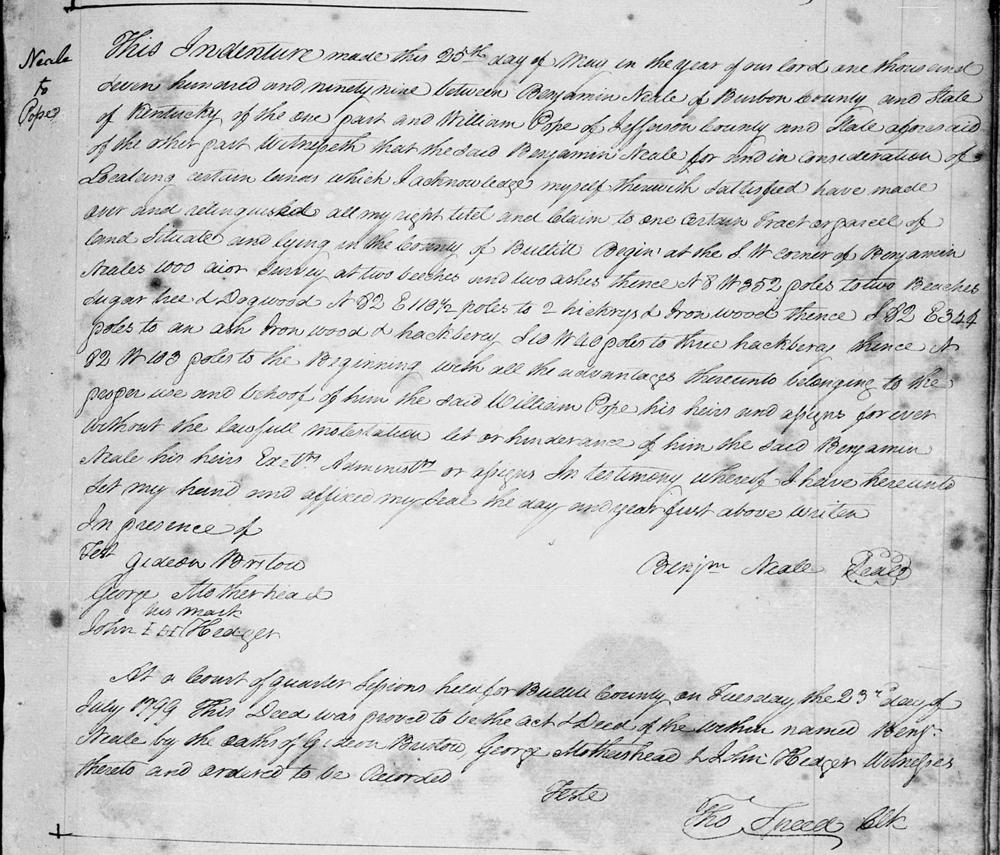 Neale
to
Pope
This Indenture made this 25th day of May in the year of our lord one thousand
seven hundred and ninety nine between Benjamin Neale of Burbon County and State
of Kentucky of the one part and William Pope of Jefferson County and State aforesaid
of the other part Witnesseth that the said Benjamin Neale for and in consideration of
Locateing certain lands which I acknowledge myself therewith satisfied have made
over and relinquished all my right titel and Claim to one certain Tract or parcel of
land Situate and lying in the County of Bullitt Begin at the S W corner of Benjamin
Neales 1000 survey at two beeches and two ashes thence N 8 W 352 poles to two Beaches
sugar tree & Dogwood N 82 E 118½ poles to 2 hickrys & Ironwood thence S 82 E 344
poles to an ash Ironwood & hackbery S 10 W 40 poles to three hackberys thence N
82 W 103 poles to the Beginning with all the advantages thereunto belonging to the
proper use and behoof of him the said William Pope his heirs and assigns for ever
Without the lawfull molestation let or hinderance of him the said Benjamin
Neale his heirs Exetrs Administrs or assigns In testimony whereof I have hereunto
set my hand and affixed my seal the day and year first above writen
In presence of
Test
Gideon Bristow
Benjm Neale Seal
George Motherhead
his mark
John Hedger
At a Court of quarter Sessions held for Bullitt County on Tuesday the 23rd day of
July 1799 This Deed was proved to be the act & Deed of the within named Benj
Neale by the oaths of Gideon Bristow, George Motherhead & John Hedger Witnesses
thereto and ordered to be Recorded
Teste
Tho Speed Clk